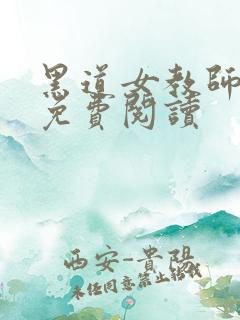 黑道女教師
免費閱讀
西安-貴陽
未经同意禁止转载